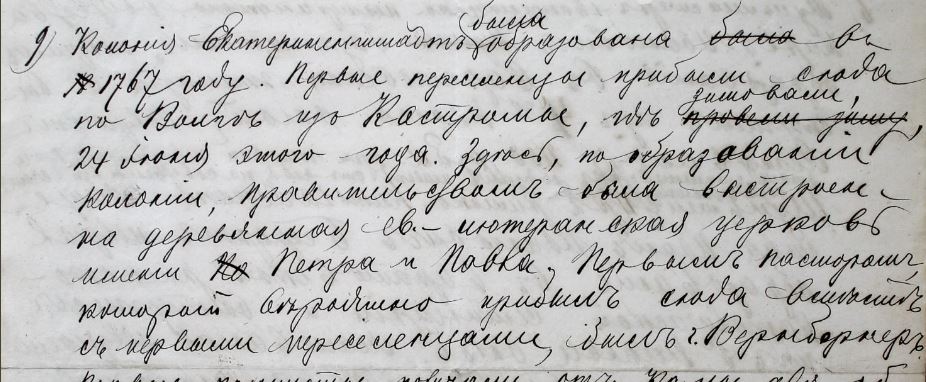 была
9) Колонія Екатериненштадтъ образована было въ
1767 году. Первые переселенцы прибыли сюда
зимовали,
по Волгѣ изъ Костромы, гдѣ провели зиму,
24 Іюля этого года. Здѣсь, по образованіи
колоніи, правительствомъ была выстроен-
на деревянная Ев.-лютеранская церковь
имени Петра и Павла. Первымъ пасторомъ,
который вѣроятно прибылъ сюда вмѣстѣ
съ первыми переселенцами, былъ г. Вернбернеръ